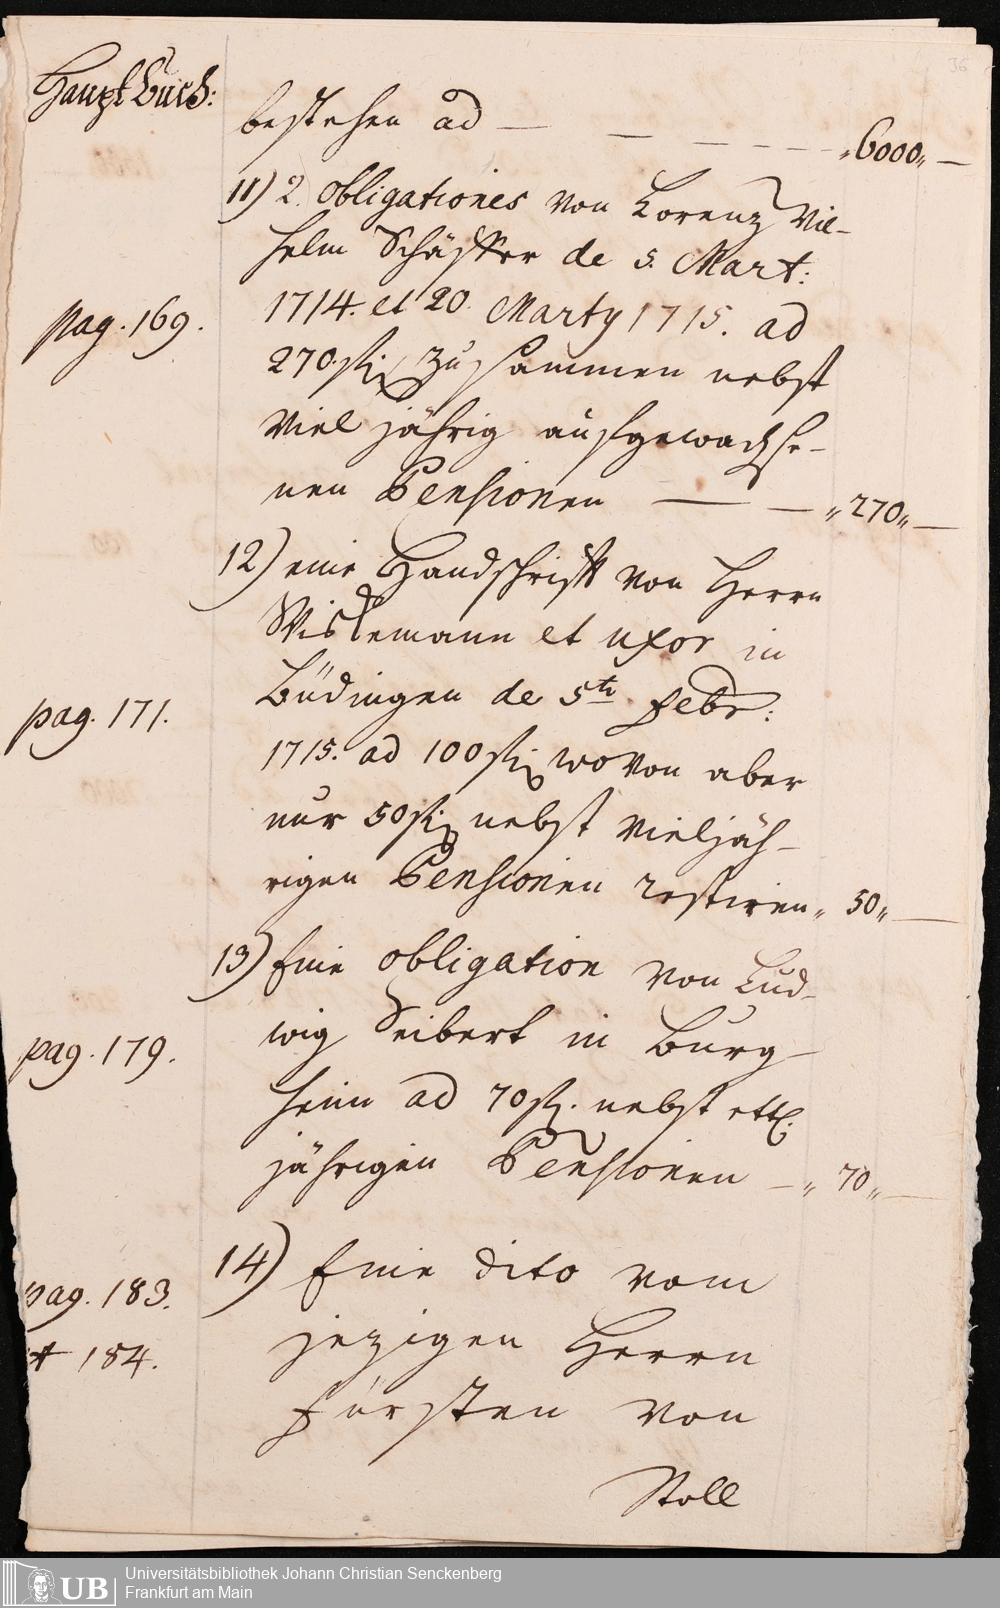 Haupt Buch:
36
bestehen ad — — — — — „6000„ —
11) 2. obligationes von Lorenz Wil-
helm Schäffer de 5. Mart:
1714. et 20. Marty 1715. ad
pag. 169.
270 fl. zusammen nebst
viel jährig aufgewachse-
nen Pensionen — — „270„ —
12) eine Handschrifft von Herrn
Wiskemann et uxor in
Büdingen de 5te Febr:
pag. 171.
1715. ad 100 fl. wovon aber
nur 50 fl. nebst vieljäh-
rigen Pensionen restiren „ 50„ —
13) Eine obligation von Lud-
wig Seibert in Burg-
pag. 179.
heim ad 70 fl. nebst ettl.
jährigen Pensionen — „ 70„ —
14) Eine dito vom
pag. 183.
jezigen Herrn
184.
Fürsten von
Stoll
UB
Universitätsbibliothek Johann Christian Senckenberg
Frankfurt am Main